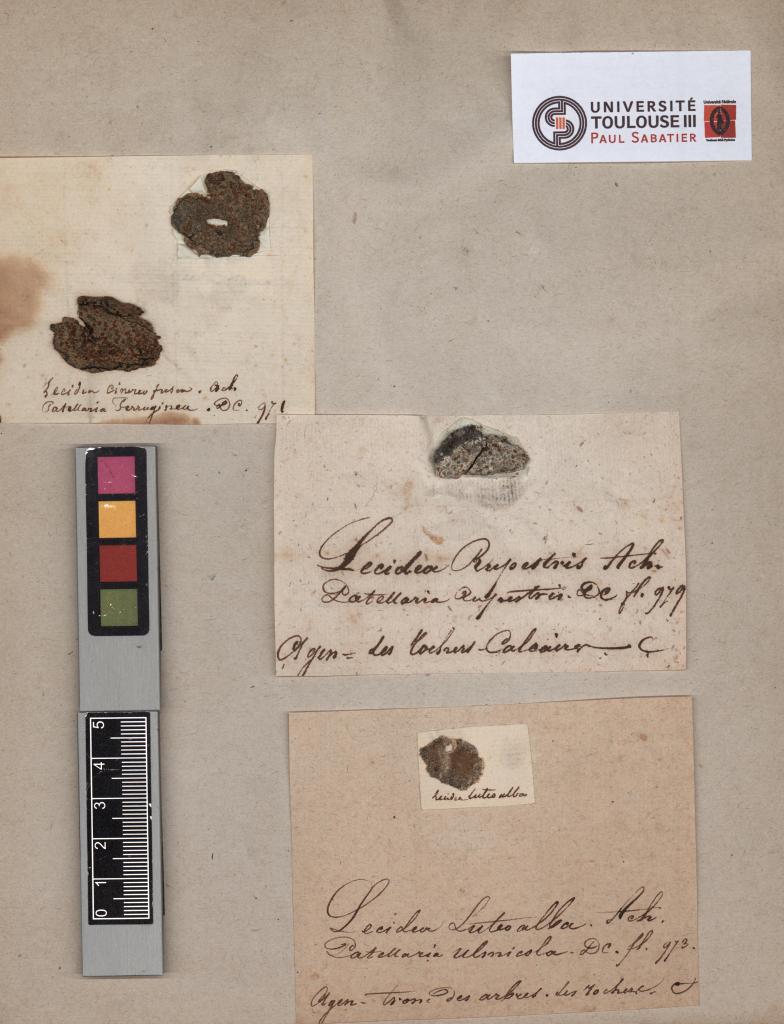 UNIVERSITÉ
TOULOUSE III
PAUL SABATIER
Lecidea Cinereo fusca. Ach.
Patellaria Ferruginea. DC. 971
Lecidea Rupestris Ach.
Patellaria Rupestris. DC fl. 979
Agen = les rochers Calcaires — C
5
4
3
2
1
0
Lecidea Luteo alba
Lecidea Luteo alba. Ach.
Patellaria Ulmicola. DC. fl. 973.
Agen - tronc des arbres. les rochers. C